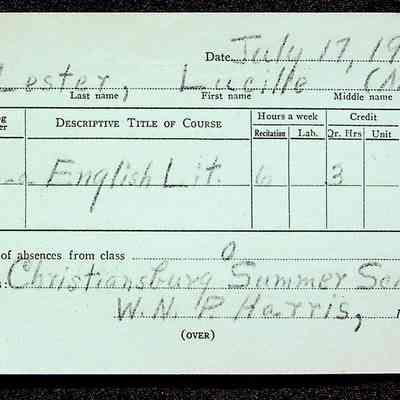 Date July 17, 19
Lester, Lucille
Last name First name Middle name
DESCRIPTIVE TITLE OF COURSE Hours a week Credit
Recitation Lab. Qr. Hrs Unit
English Lit. 6 3
of absences from class 0
Christiansburg Summer
W. N. P. Harris,
(OVER)